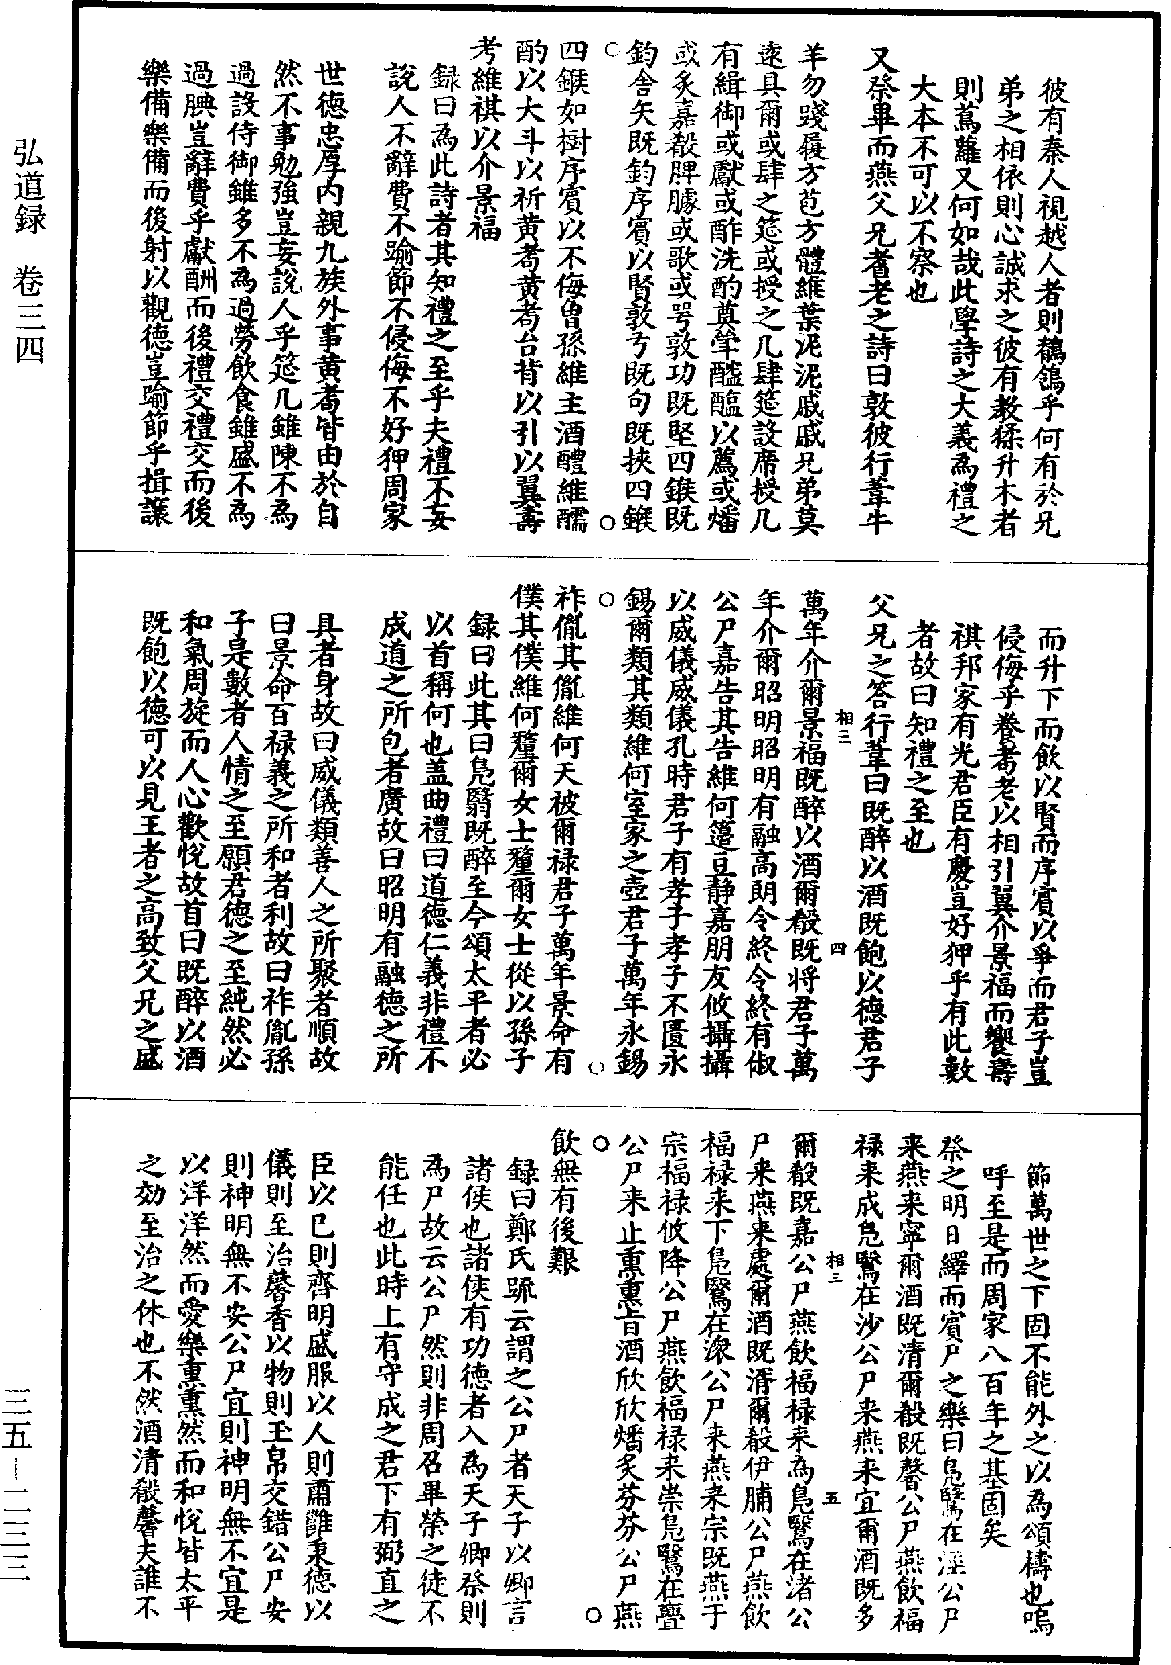 弘道録　卷三四
彼有秦人視越人者則鶺鴒乎何有於兄
弟之相依則心誠求之彼有教猱升木者
則蔦蘿又何如哉此學詩之大義為禮之
大本不可以不察也
又祭畢而燕父兄耆老之詩曰敦彼行葦牛
羊勿踐履方苞方體維葉泥泥戚戚兄弟莫
逺具爾或肆之筵或授之几肆筵設席授几
有緝御或獻或酢洗酌奠斝醓醢以薦或燔
或炙嘉殽脾臄或歌或咢敦功既堅四鍭既
鈞舍矢既鈞序賓以賢敦弓既句既挾四鍭
四鍭如樹序賓以不侮曽孫維主酒醴維醹
酌以大斗以祈黄耇黄耇台背以引以翼壽
考維祺以介景福
録曰為此詩者其知禮之至乎夫禮不妄
説人不辭費不踰節不侵侮不好狎周家
世徳忠厚内親九族外事黄耇皆由於自
然不事勉強豈妄說人乎筵几雖陳不為
過設侍御雖多不為過勞飲食雖盛不為
過腆豈辭費乎獻酬而後禮交禮交而後
樂備樂備而後射以觀德豈踰節乎揖讓
而升下而飲以賢而序賓以爭而君子豈
侵侮乎養耇老以相引翼介景福而饗壽
祺邦家有光君臣有慶豈好狎乎有此數
者故曰知禮之至也
父兄之答行葦曰既醉以酒既飽以德君子
萬年介爾景福既醉以酒爾殽既将君子萬
年介爾昭明昭明有融髙朗令終令終有俶
公尸嘉告其告維何籩豆静嘉朋友攸攝攝
以威儀威儀孔時君子有孝子孝子不匱永
錫爾類其類維何室家之壺君子萬年永錫
祚胤其胤維何天被爾禄君子萬年景命有
僕其僕維何釐爾女士釐爾女士從以孫子
録曰此其曰鳬鷖既醉至今頌太平者必
以首稱何也盖曲禮曰道德仁義非禮不
成道之所包者廣故曰昭明有融德之所
具者身故曰威儀類善人之所聚者順故
曰景命百禄義之所和者利故曰祚胤孫
子是數者人情之至願君德之至純然必
和氣周旋而人心歡悅故首曰既醉以酒
既飽以德可以見王者之高致父兄之盛
節萬世之下固不能外之以為頌禱也嗚
呼至是而周家八百年之基固矣
祭之明日繹而賓尸之樂曰鳬鷖在涇公尸
来燕来寧爾酒既清爾殽既馨公尸燕飲福
禄来成鳬鷖在沙公尸来燕来宜爾酒既多
爾殽既嘉公尸燕飲福禄来為鳬鷖在渚公
尸来燕来處爾酒既湑爾殽伊脯公尸燕飲
福禄来下鳬鷖在潨公尸来燕来宗既燕于
宗福禄攸降公尸燕飲福禄来崇鳬鷖在亹
公尸来止熏熏旨酒欣欣燔炙芬芬公尸燕
飲無有後艱
録曰鄭氏䟽云謂之公尸者天子以卿言
諸侯也諸侯有功德者入為天子卿祭則
為尸故云公尸然則非周召畢榮之徒不
能任也此時上有守成之君下有弼直之
臣以巳則齊明盛服以人則肅雝秉德以
儀則至治馨香以物則玉帛交錯公尸安
則神明無不安公尸宜則神明無不宜是
以洋洋然而愛樂熏熏然而和悅皆太平
之効至治之休也不然酒清殽馨夫誰不
相三
四
相三
五
三五—二三三